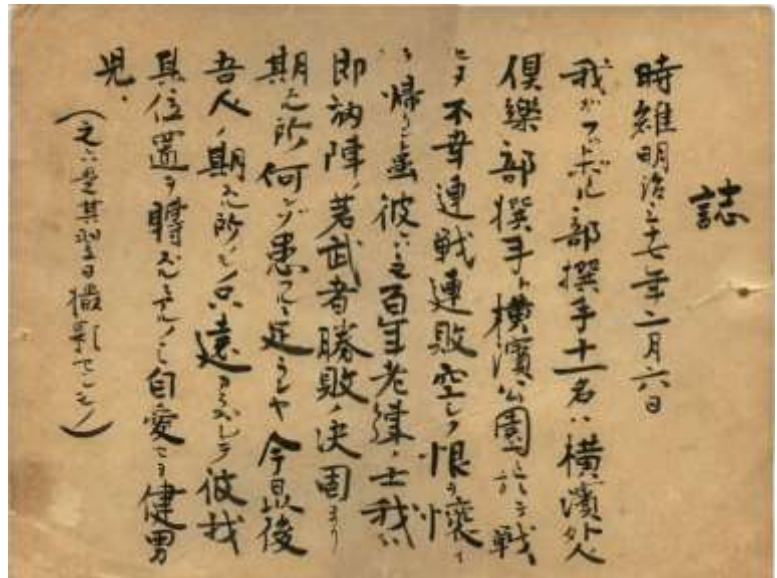 誌
時維明治三十七年二月六日
我ガフットボール部撰手十一名ハ横濱外人
倶樂部撰手ト横濱公園ニ於テ戦
ヒタ不幸連戦連敗空シク恨ヲ懐イ
テ帰リシト雖彼ハ之百年老練ノ士我ハ
即訥陣ノ若武者勝敗ノ决固ヨリ
期スル所ノ何ンゾ患フルニ足ランヤ今日最後
吾人ノ期スル所ノシ只遠カラズシテ彼我
其位置ヲ轉ズルニアルノミ自愛セヨ健男
児、
(之六是其翌日撮影セシモノ)